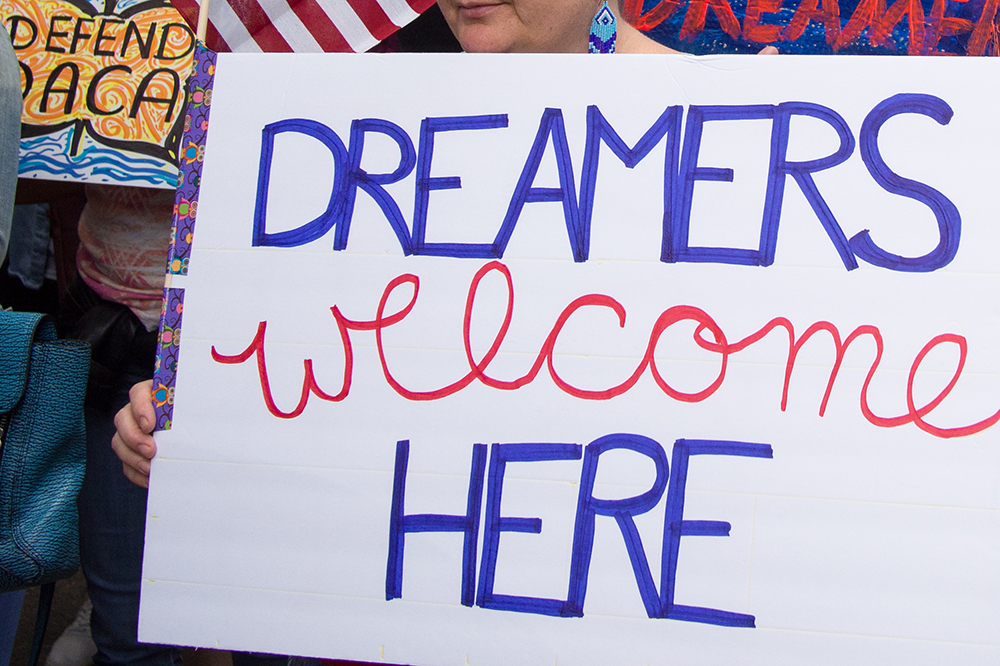 DEFEND
DACA
DREAMER
DREAMERS
welcome
HERE